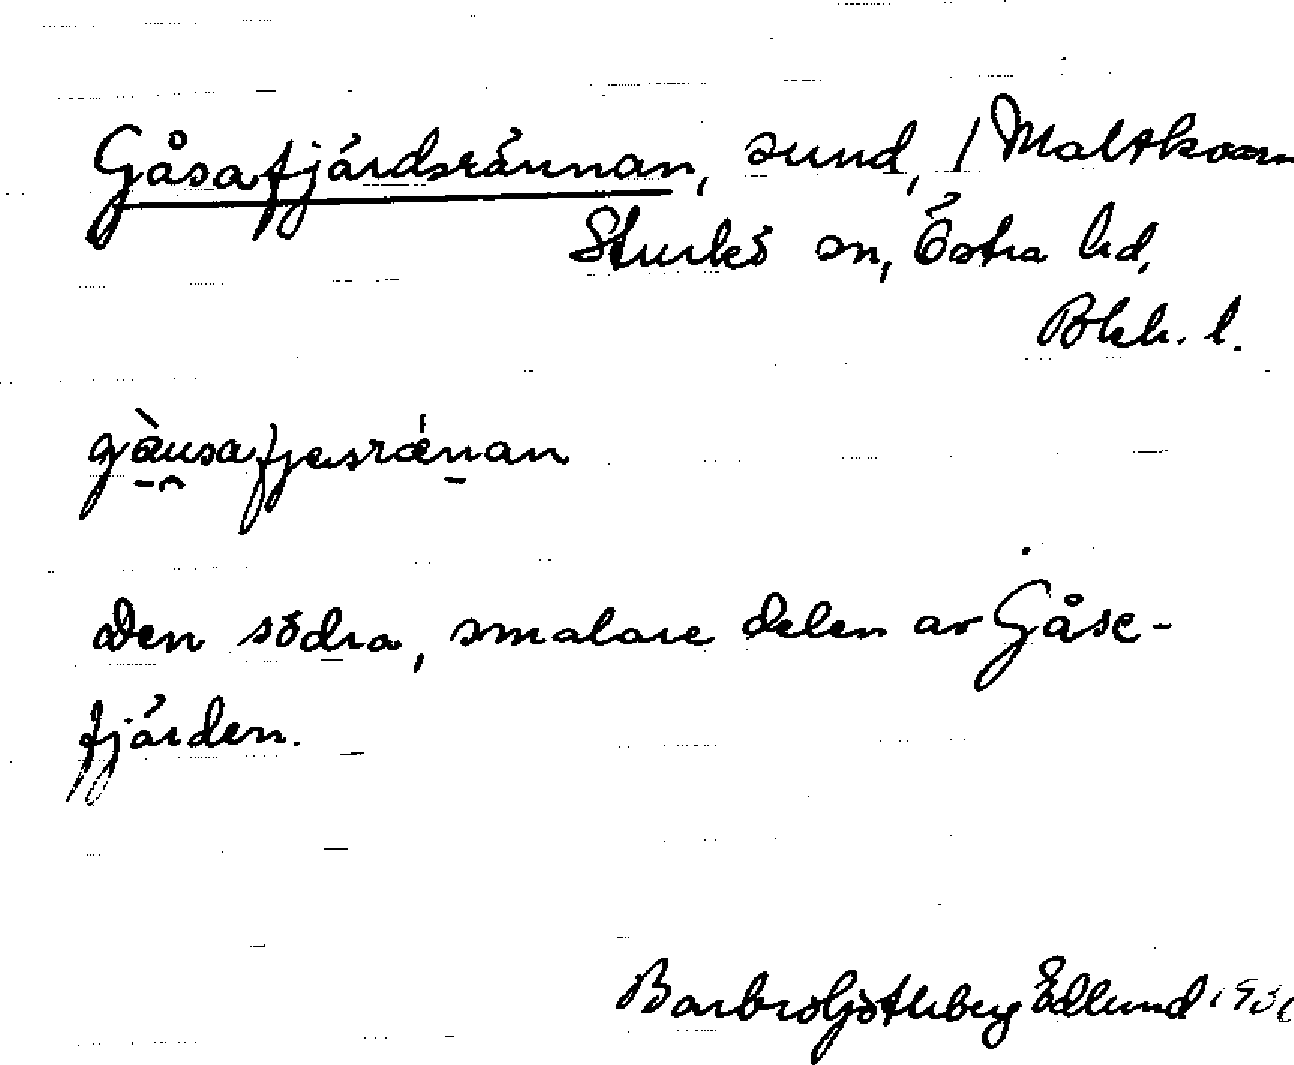 Gåsafjärdsrännan, sund, / Maltkvarn
Sturkö sn, Östra hd,
Blek. l.
gàusafjesrǽnan
Den södra, smalare delen av Gåse-
fjärden.
Barbro Götheberg Edlund